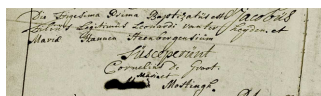 Die Vigesima Prima Baptizatus est Jacobus
Filius Legitimus Leonardi van der Heyden, et
Maria Hannen Steenbergensium
Susceperunt
Cornelius de Groot
Maria
Mostingh.